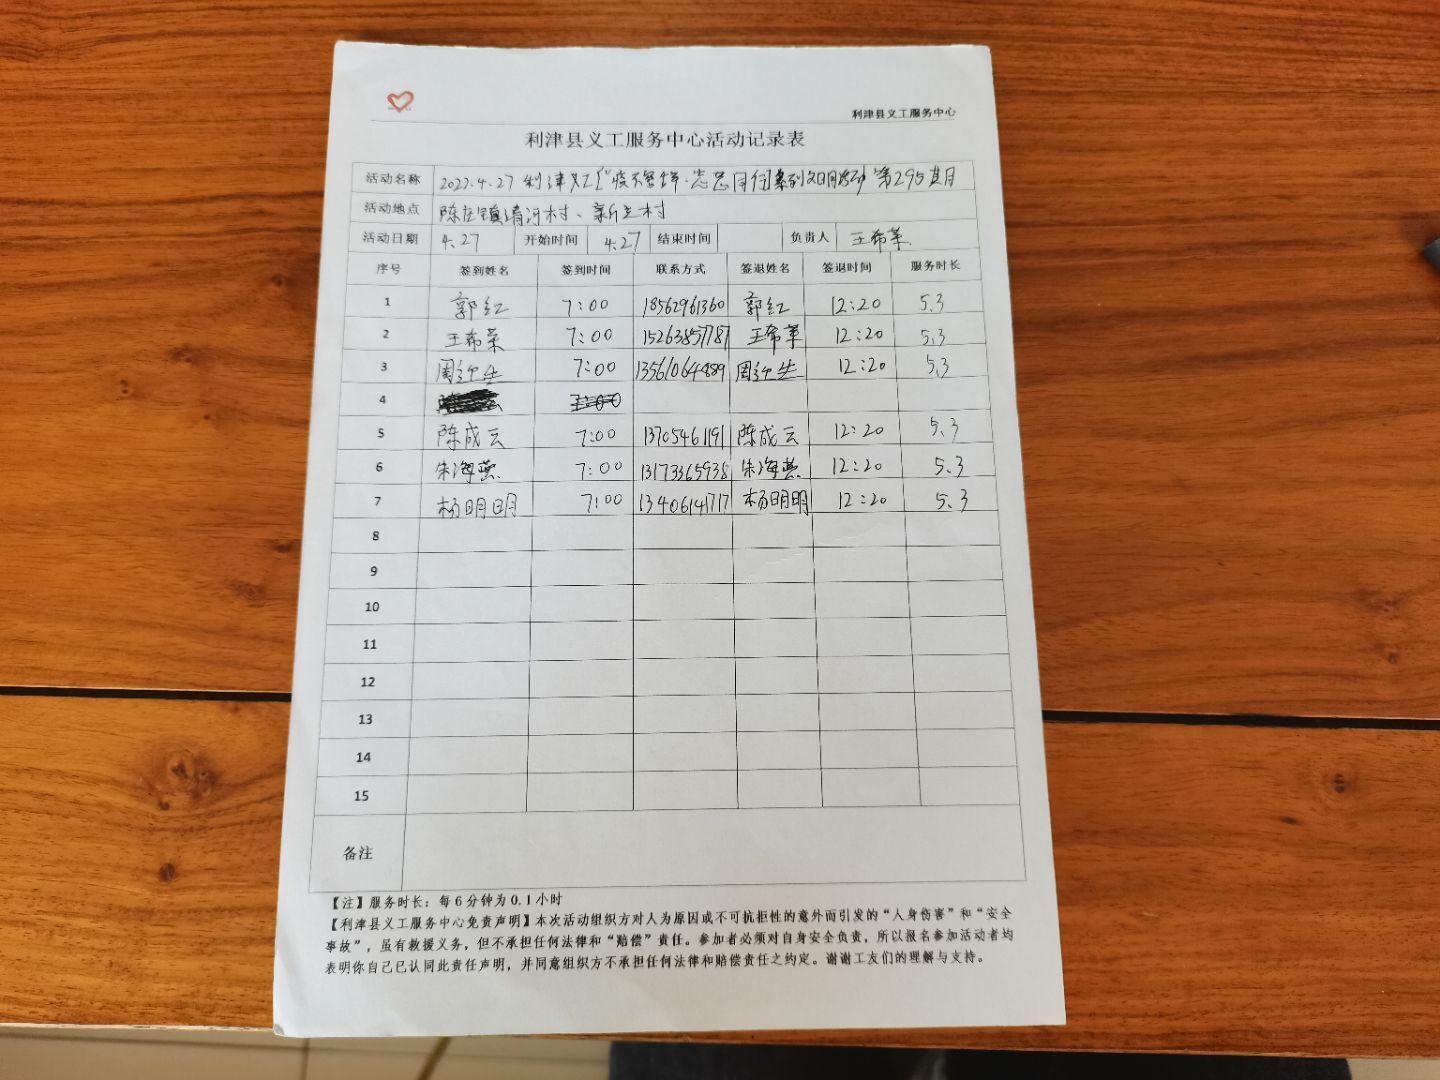 利津县义工服务中心
利津县义工服务中心活动记录表
活动名称 2022.4.27 利津义工"疫不容辞·志愿同行"系列 第295期
活动地点 陈庄镇清河村、新立村
活动日期 4.27 开始时间 4.27 结束时间 负责人 王希荣
序号 签到姓名 签到时间 联系方式 签退姓名 签退时间 服务时长
1 郭红 7:00 18562961360 郭红 12:20 5.3
2 王希荣 7:00 15263857787 王希荣 12:20 5.3
3 7:00 13561064889 12:20 5.3
4
5 陈成云 7:00 13705461191 陈成云 12:20 5.3
6 朱海燕 7:00 13173365938 朱海燕 12:20 5.3
7 杨明明 7:00 13406141717 杨明明 12:20 5.3
8
9
10
11
12
13
14
15
备注
【注】服务时长：每6分钟为0.1小时
【利津县义工服务中心免责声明】本次活动组织方对人为原因或不可抗拒性的意外而引发的"人身伤害"和"安全
事故"，虽有救援义务，但不承担任何法律和"赔偿"责任。参加者必须对自身安全负责，所以报名参加活动者均
表明你自己已认同此责任声明，并同意组织方不承担任何法律和赔偿责任之约定。谢谢工友们的理解与支持。